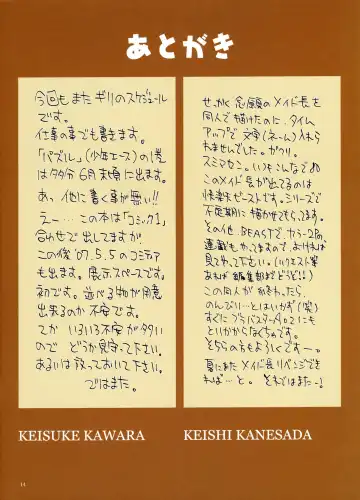 あとがき
今回もまたギリのスケジュール
です。
仕事の事でも書きます。
「パズル」(少年エース)の1巻
は多分6月末頃に出ます。
あっ、他に書く事が無い!!
えー…この本は「コミック1」
合わせで出してますが
この後'07.5.5のコミティア
も出ます。展示スペースです。
初です。並べる物が用意
出来るのか不安です。
てか いろいろ不安が多い
ので どうか見守って下さい。
あるいは放っておいて下さい。
ではまた。
KEISUKE KAWARA
せっかく念願のメイド長を
同人で描けたのに、タイム
アップで文字(ネーム)入れら
れませんでした。ガクリ。
スミマセン。いつもこんなで
このメイド長が出てるのは
快楽天ビーストです。シリーズで
不定期に描かせてもらってます。
その他、BEASTで、カラー2P
連載もやってますので、よければ
見てやって下さい。(リクエスト等
あれば編集部までどうぞ!!)
この同人が終わったら、
のんびり…とはいかず(笑)
すぐにブラバスターAct2にも
とりかからなくちゃです。
そちらの方もよろしくですー。
夏にまたメイド長リベンジできれ
ば…と。それではまたー
KEISHI KANESADA
44